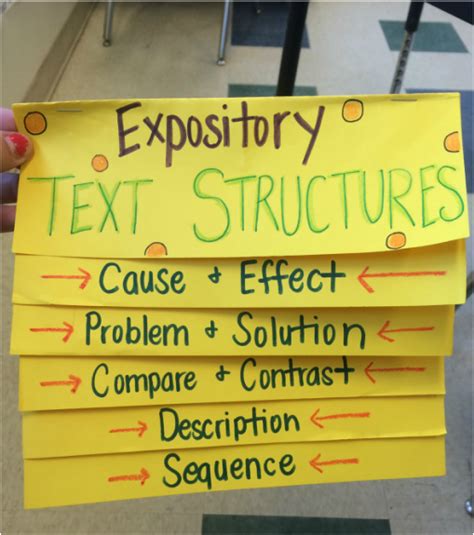 Expository
TEXT STRUCTURES
Cause + Effect
Problem + Solution
Compare + Contrast
Description
Sequence